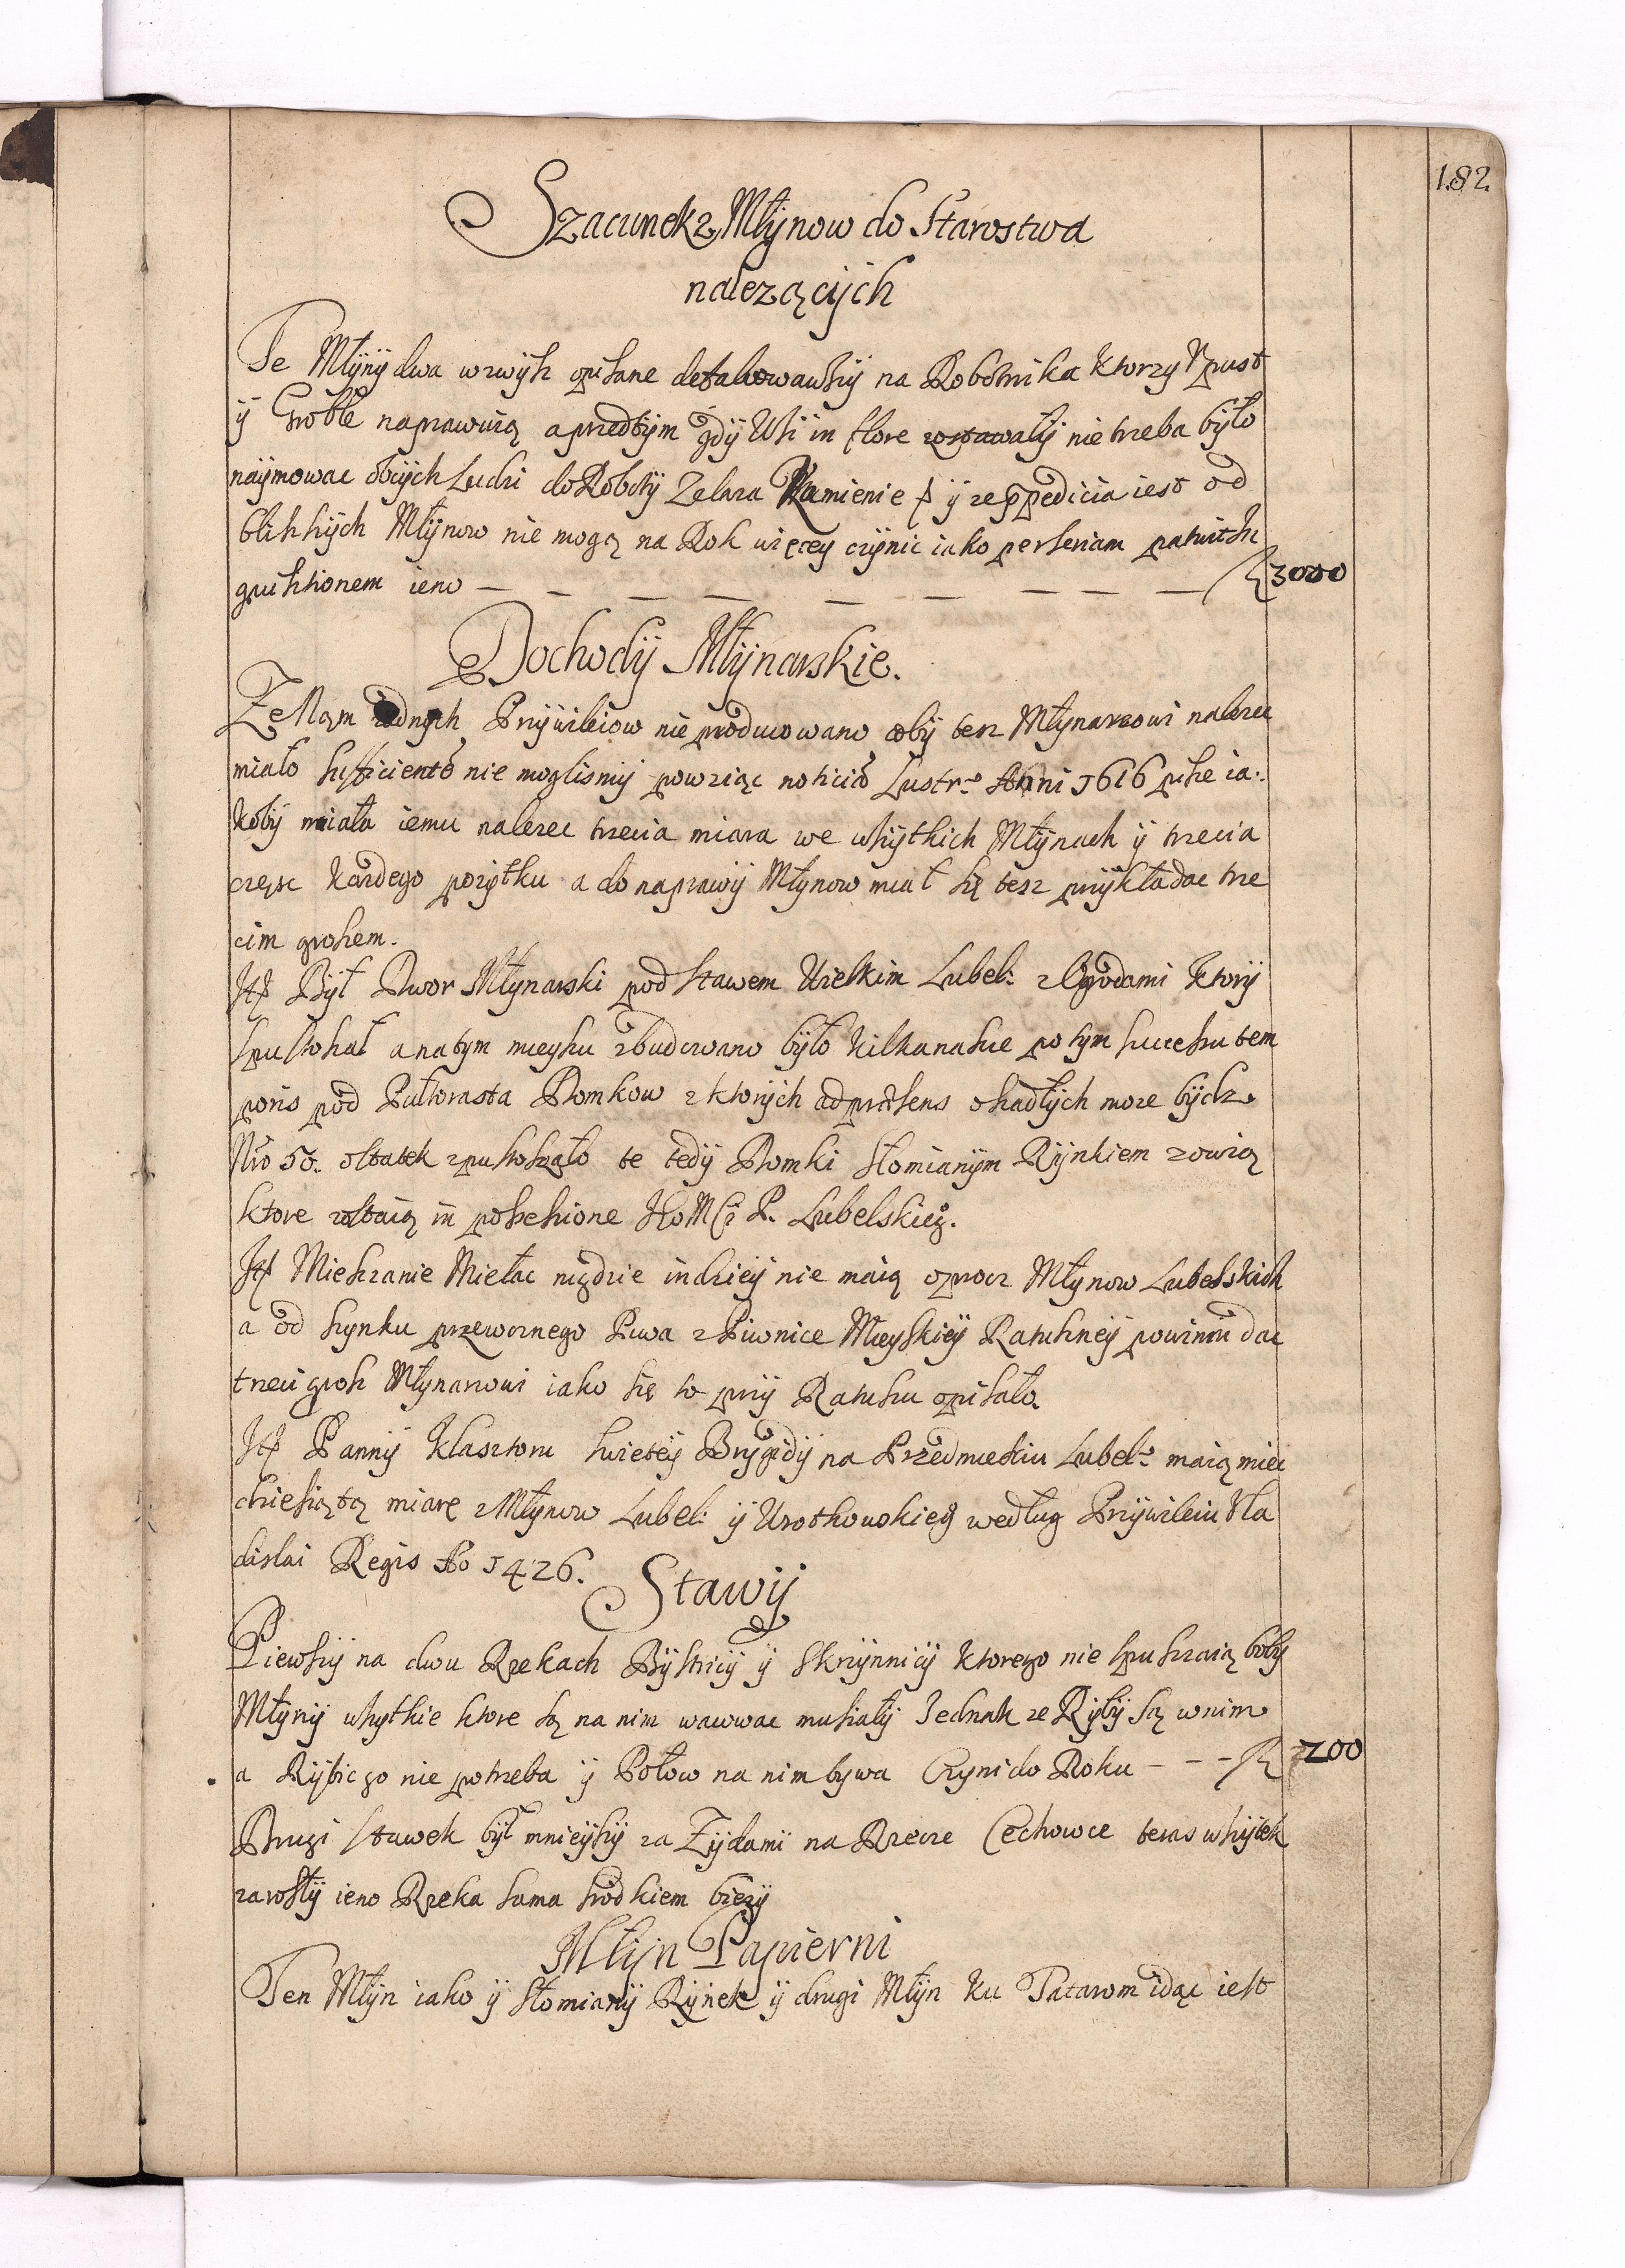 182.
Szacunek z Młynow do Starostwa
nalezących
Te Młyny dwa wzwysz opisane defalkowawszy na Robotnika ktorzy Upust
ÿ Groble naprawuią a przedtym gdÿ Wsi in flore zostawałÿ nie trzeba było
naÿmowac obcÿch Ludzi do Robotÿ Zelaza Kamienie p ÿ ze expedicia iest od
bliszszÿch Młÿnow nie mogą na Rok więcey czÿnic iako per seriam patuit In
quisitionem ieno — — — — — — — — — fl 3000
Dochodÿ Młÿnarskie.
Ze Nąm zadnych Przÿwileiow nie producowano cobÿ tesz Młynarzowi nalezec
miało sufficienter nie moglismÿ powziąc noticiā Lustr.º Anni 1616 pisze ia:
kobÿ miała iemu nalezec trzecia miara we wszÿtkich Młÿnach ÿ trzecia
częsc kazdego pozÿtku a do naprawÿ Młynow miał się tesz przÿkładac trze
cim groszem.
Itt Bÿł Dwor Młynarski pod stawem Wielkim Lubel: z Ogrodami ktorÿ
spustoszał a na tym mieyscu zbudowano bÿło kilkanascie potym successu tem
poris pod Pułtorasta Domkow z ktorÿch ad præsens osiadłÿch moze bÿdz
Nro 50. ostatek zpustoszało te tedÿ Domki Słomianÿm Rÿnkiem zowią
ktore zostaią in possessione IeoMCi P. Lubelskieg.
Itt Mieszczanie Mełac nigdzie indzieÿ nie maią oprocz Młynow Lubelskich
a od szynku przewoznego Piwa z Piwnice Mieÿskieÿ Ratuszneÿ powinni dac
trzeci grosz Młynarzowi iako się to przÿ Ratuszu opisało.
Itt Pannÿ Klasztoru swieteÿ Brygidÿ na Przedmiesciu Lubel: maią miec
dziesiątą miarę z Młynow Lubel: ÿ Wrotkowskieg według Przÿwileiu Vla
dislai Regis Ao 1426.
Stawÿ
Piewszÿ na dwu Rzekach Bÿstricÿ ÿ Skrzÿnnicÿ ktorego nie spuszczaią bobÿ
Młynÿ wszytkie ktore są na nim wawac musiałÿ Iednak ze Rÿbÿ są w nim
a Rÿbiego nie potrzeba ÿ Połow na nim bywa Czyni do Roku - - - fl 200
Drugi stawek bÿł mnieÿszÿ za Zÿdami na Rzece Cechowce teras wszÿtek
zarosłÿ ieno Rzeka sama srodkiem biezÿ
Młÿn Papierni
Ten Młÿn iako ÿ Słomianÿ Rÿnek ÿ drugi Młÿn ku Tatarom idąc iest